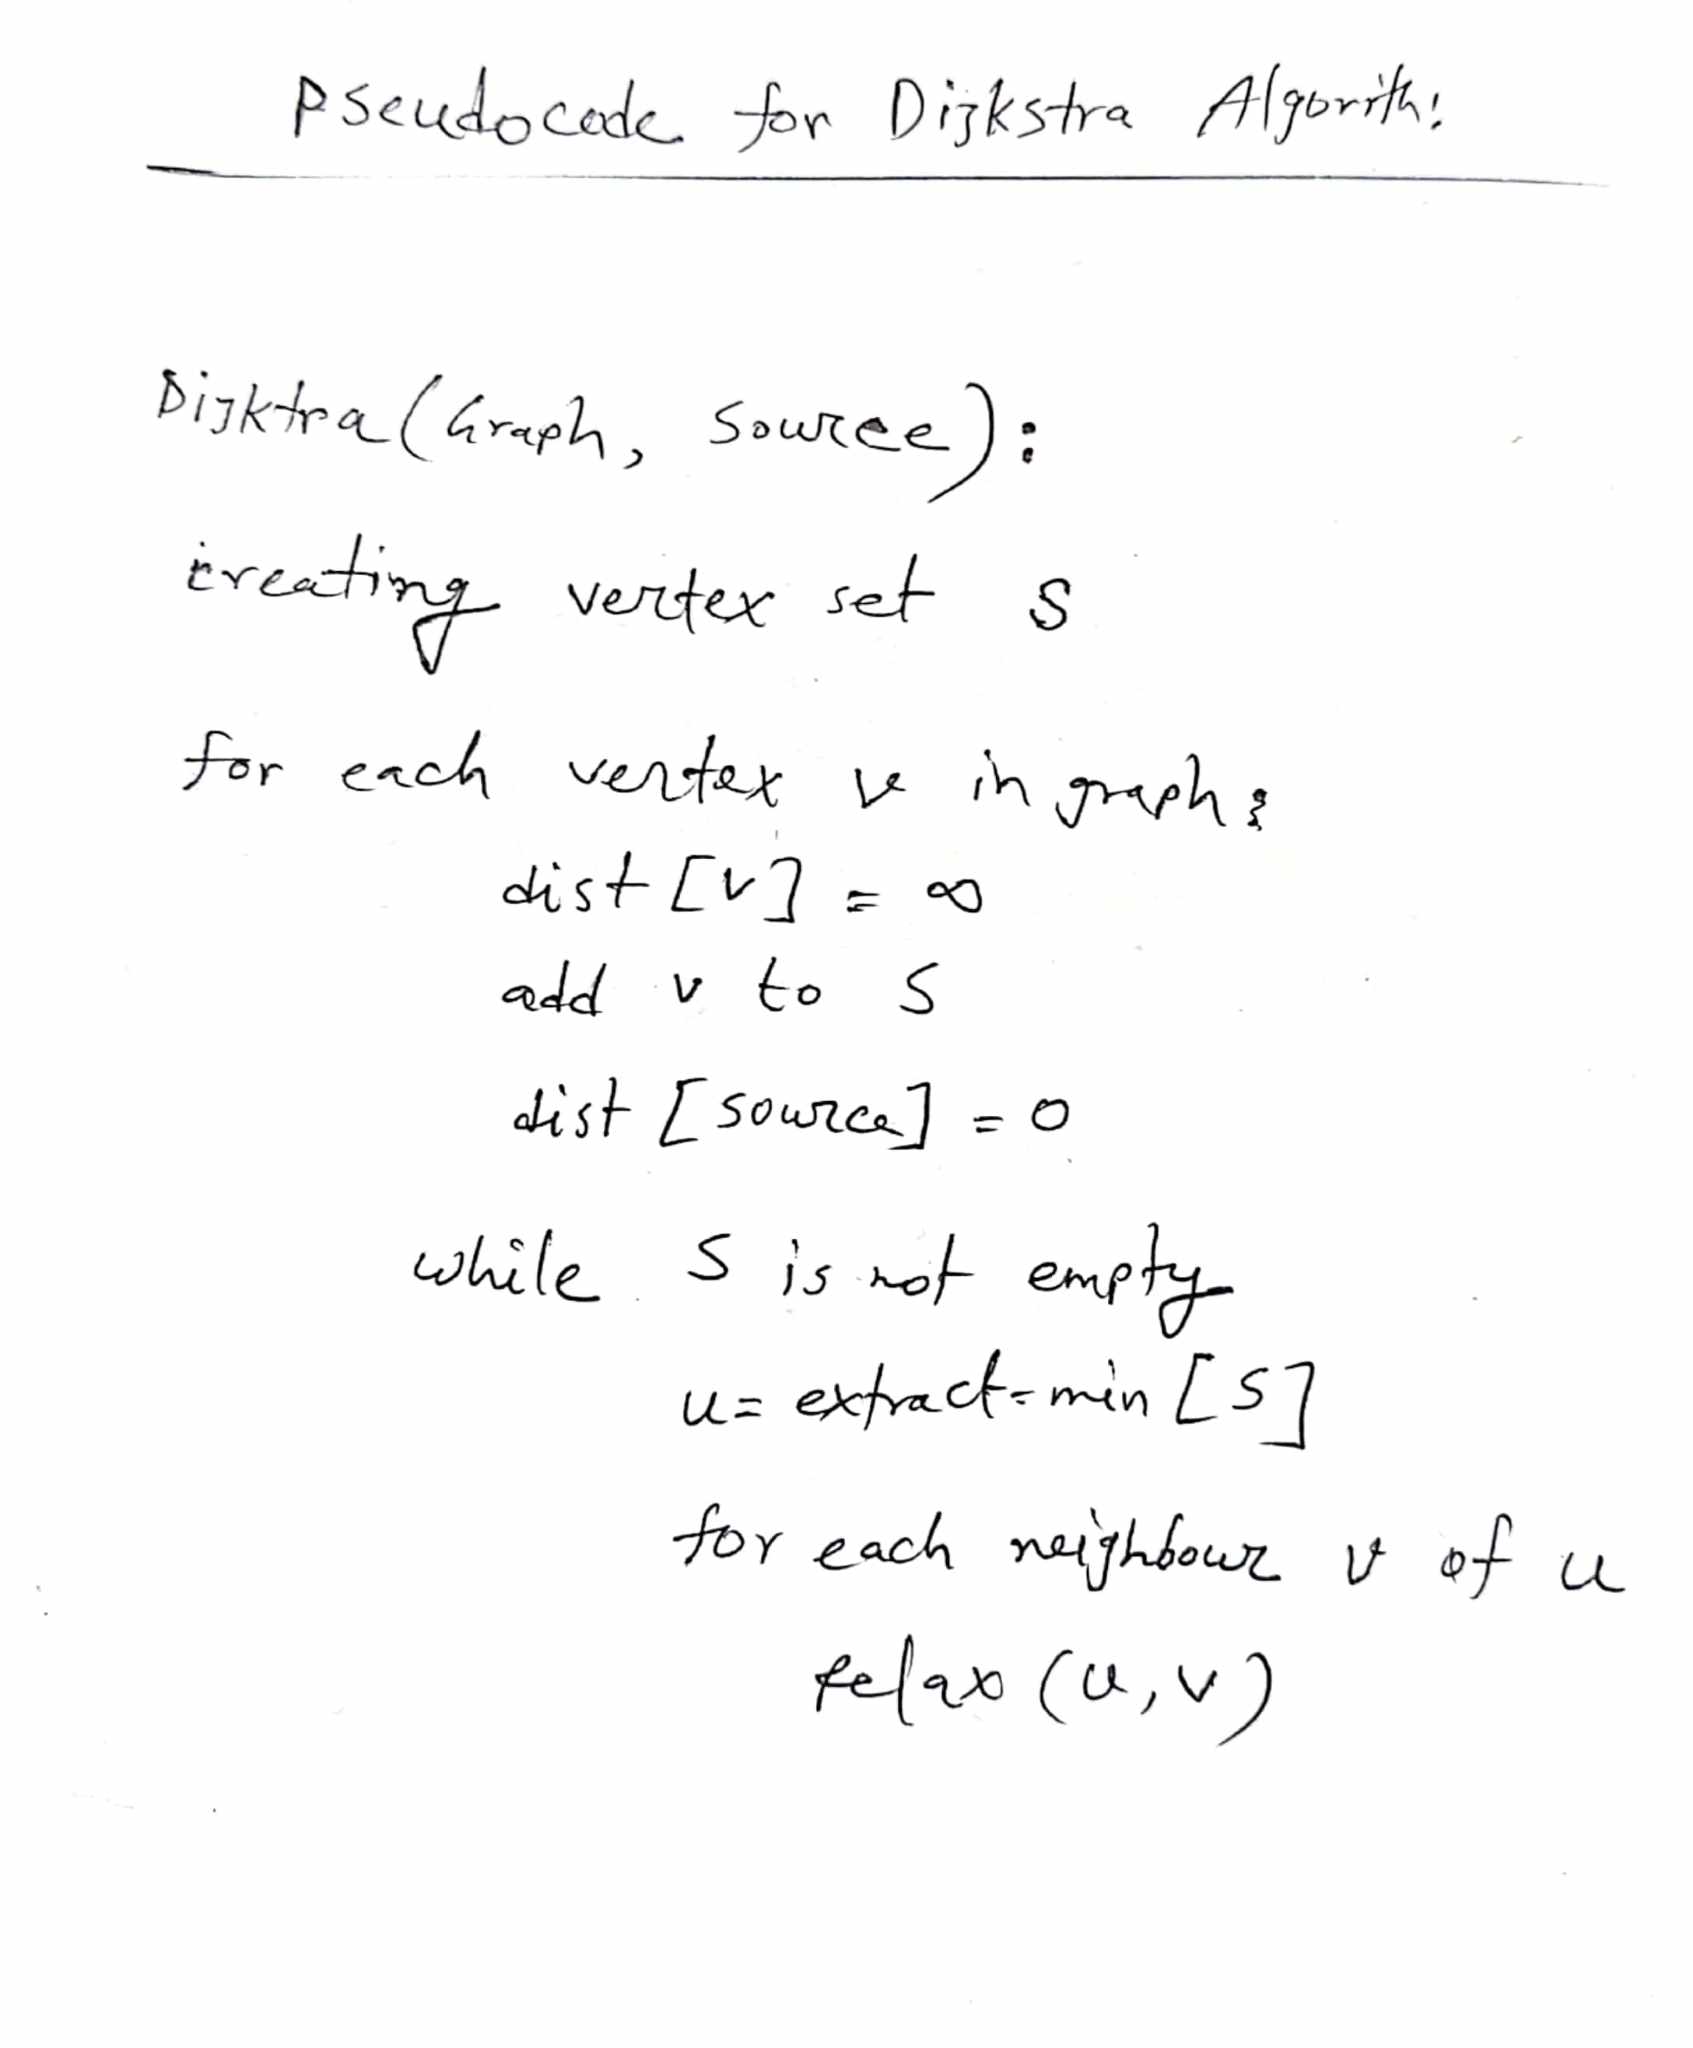 Pseudocode for Dijkstra Algorith:
Dijktra (Graph, Source):
creating vertex set S
for each vertex v in graph:
dist [v] = ∞
add v to S
dist [source] = 0
while S is not empty
u = extract-min [S]
for each neighbour v of u
relax (u, v)